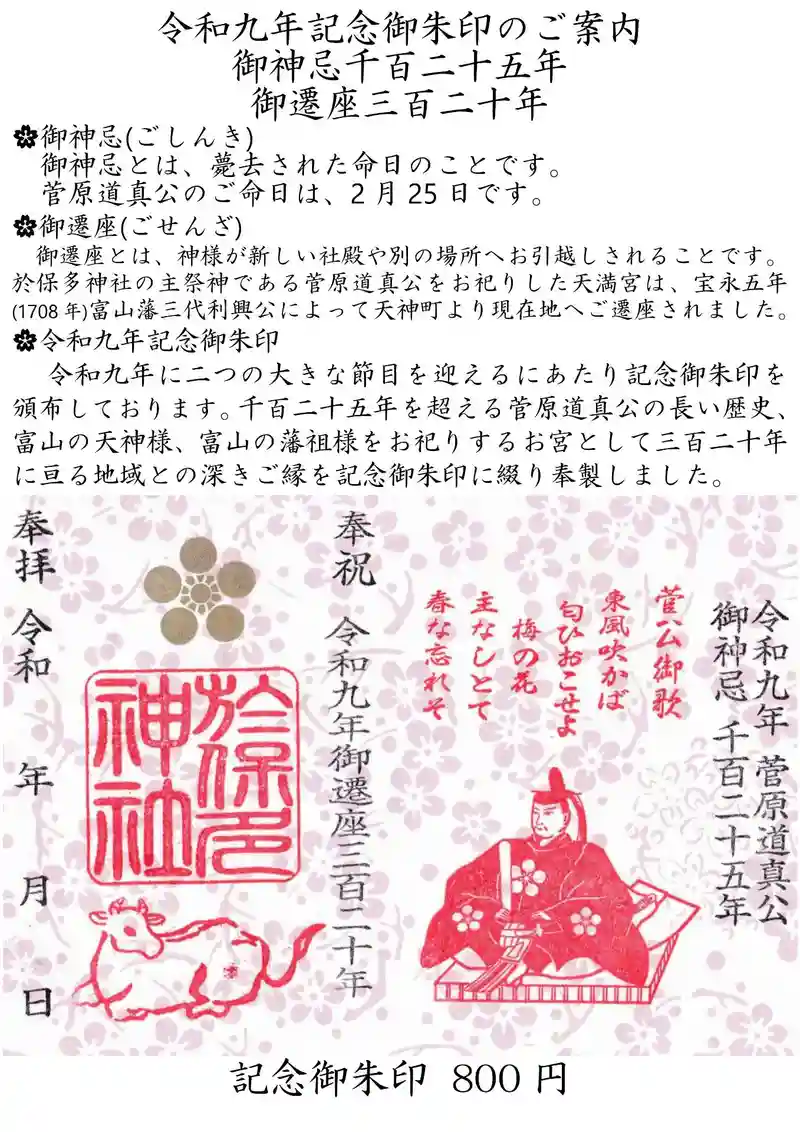 令和九年記念御朱印のご案内
御神忌千百二十五年
御遷座三百二十年
御神忌(ごしんき)
御神忌とは、薨去された命日のことです。
菅原道真公のご命日は、2月25日です。
御遷座(ごせんざ)
御遷座とは、神様が新しい社殿や別の場所へお引越しされることです。
於保多神社の主祭神である菅原道真公をお祀りした天満宮は、宝永五年
(1708年)富山藩三代利興公によって天神町より現在地へご遷座されました。
令和九年記念御朱印
令和九年に二つの大きな節目を迎えるにあたり記念御朱印を
頒布しております。千百二十五年を超える菅原道真公の長い歴史、
富山の天神様、富山の藩祖様をお祀りするお宮として三百二十年
に亘る地域との深きご縁を記念御朱印に綴り奉製しました。
令和九年 菅原道真公
御神忌 千百二十五年
菅公御歌
東風吹かば
匂ひおこせよ
梅の花
主なしとて
春な忘れそ
奉祝 令和九年御遷座三百二十年
於保多
神社
奉拝 令和 年 月 日
記念御朱印 800円